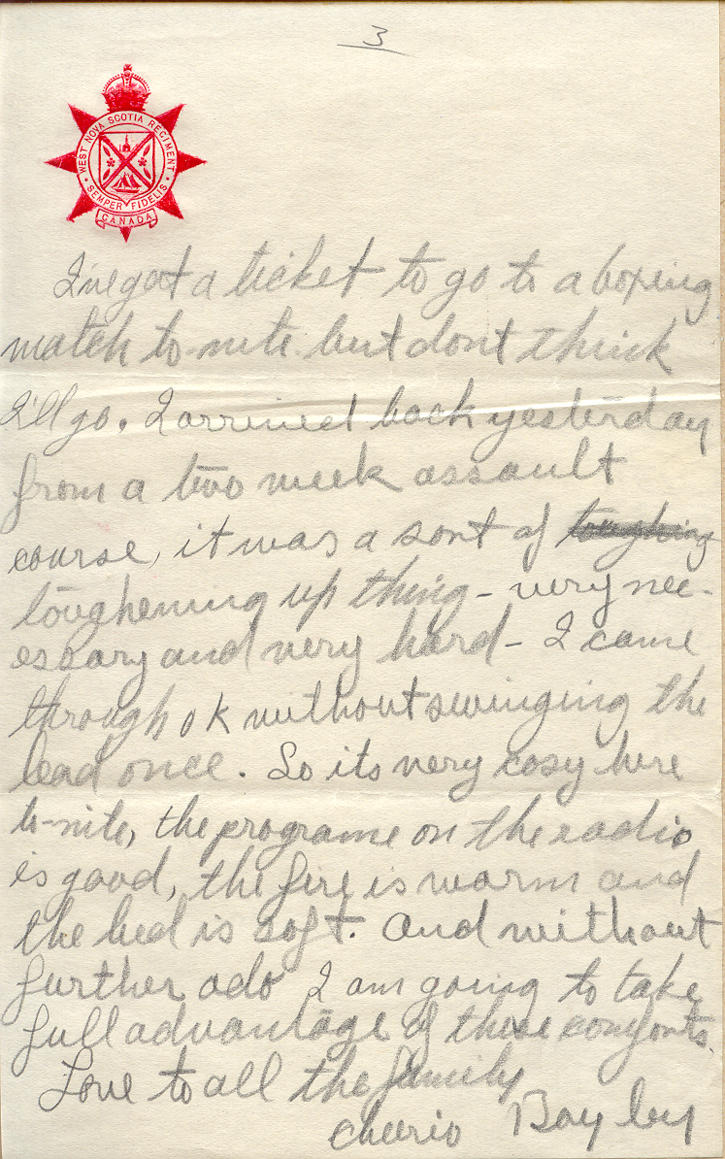 3
WEST NOVA SCOTIA REGIMENT
SEMPER FIDELIS
CANADA
I've got a ticket to go to a boxing
match to-nite but dont think
I'll go. I arrived back yesterday
from a two week assault
course, it was a sort of toughing
toughening up thing - very nec-
essary and very hard - I came
through ok without swinging the
lead once. So its very cosy here
to-nite, the programe on the radio
is good, the fire is warm and
the bed is soft. And without
further ado I am going to take
full advantage of these comforts.
Love to all the family
Cheerio Bayley